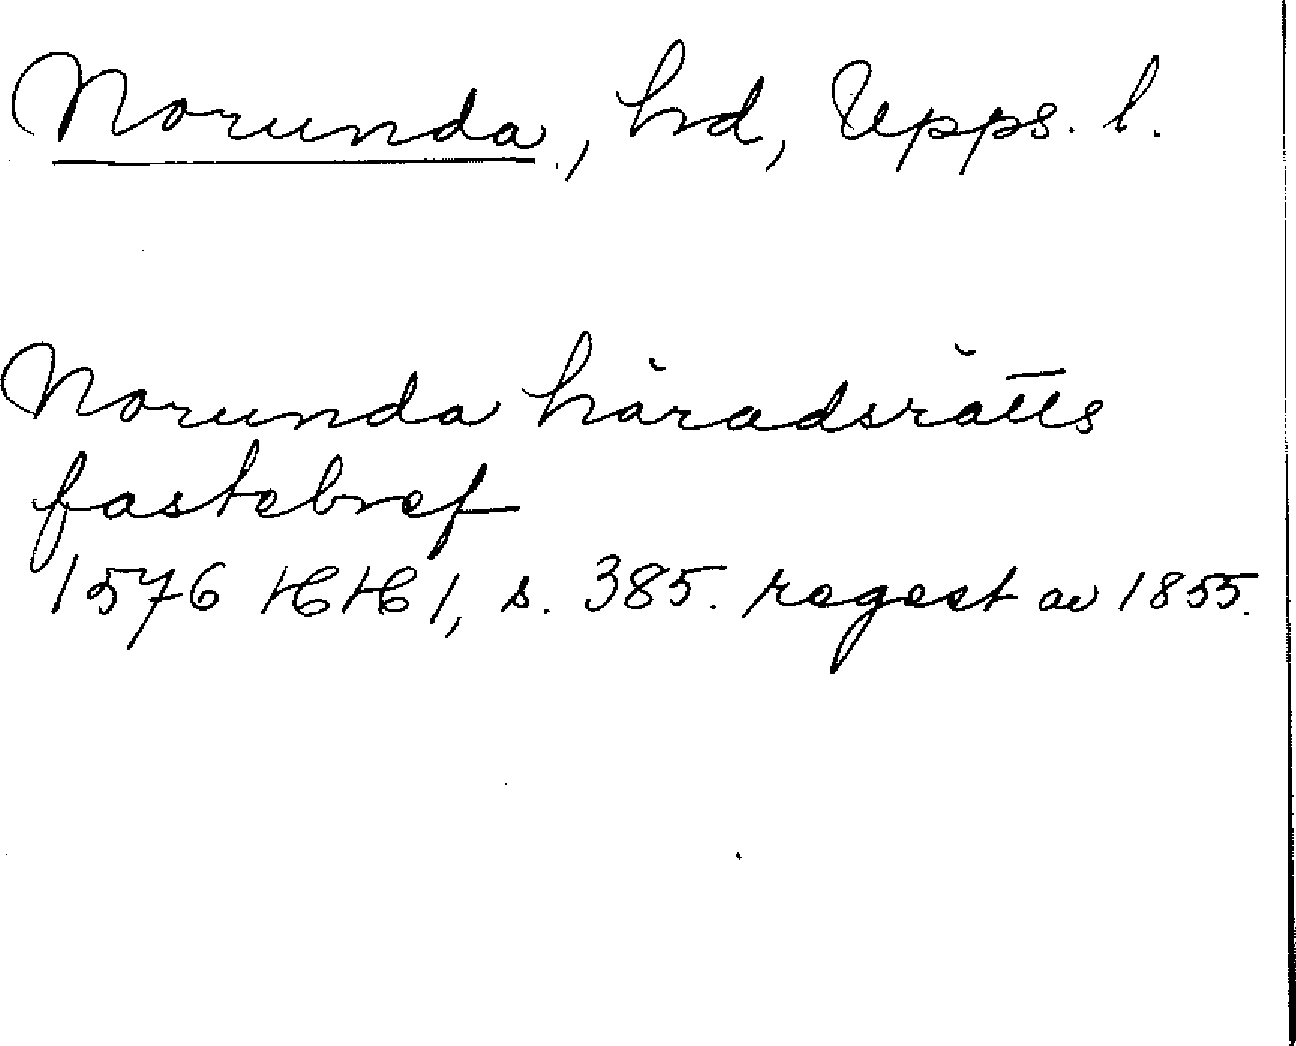 Norunda, hrd, Upps. l.
Norunda häradsrätts
fastebref
1576 HH 1, s. 385. regest av 1855.